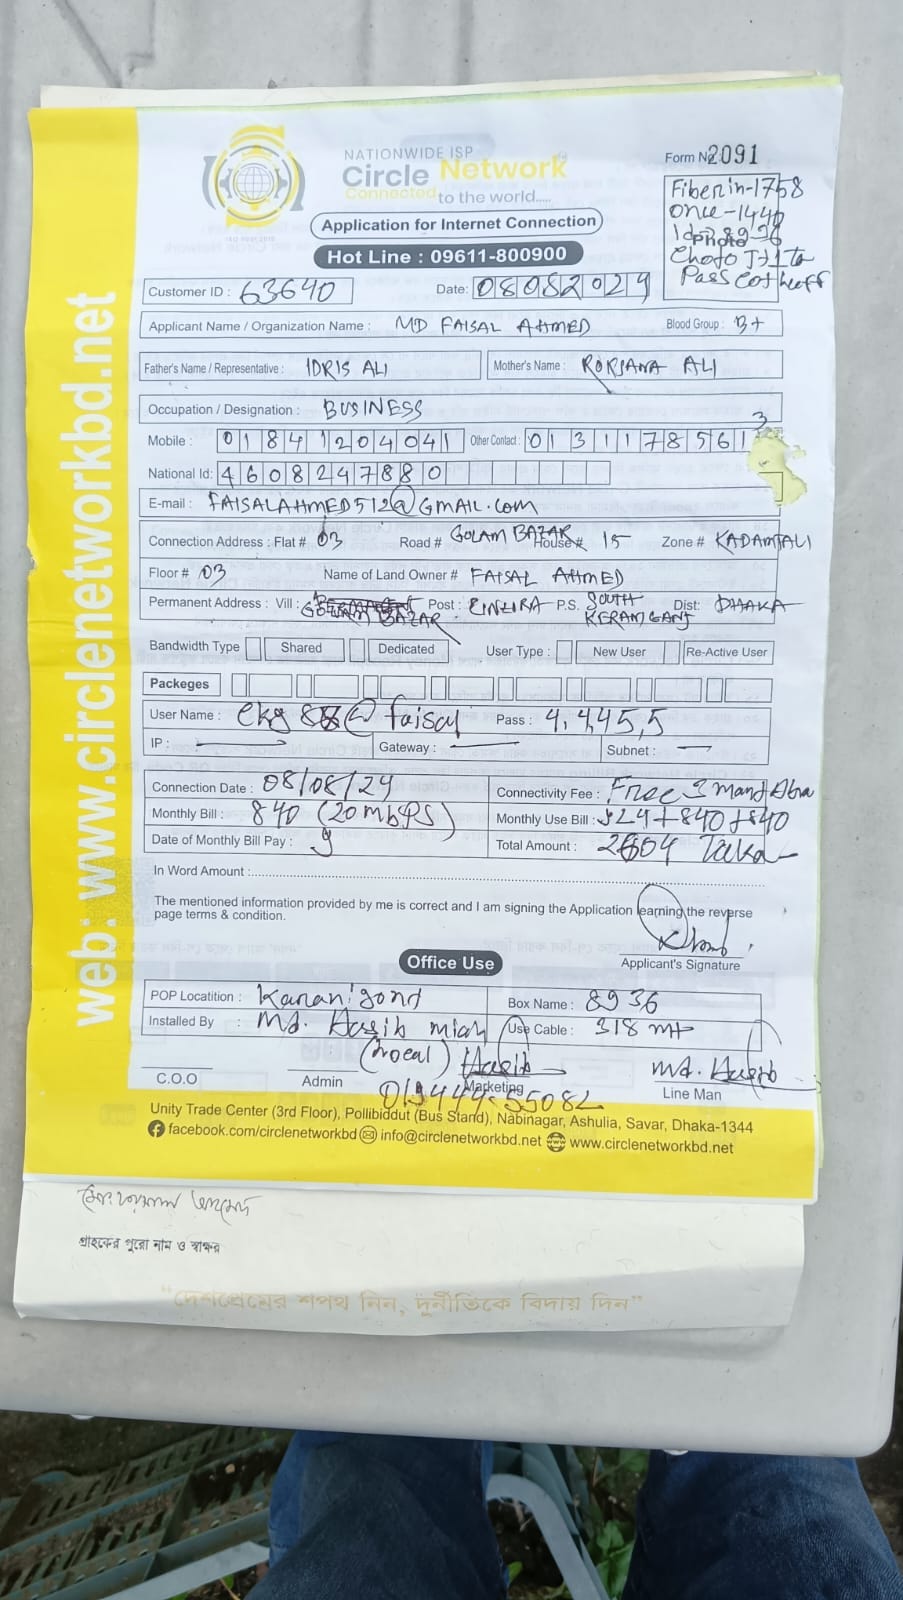 NATIONWIDE ISP
Circle Network
Connected to the world.....
Application for Internet Connection
Hot Line : 09611-800900
Form No 2091
Fiber in-1758
Once-1440
Customer ID : 63640
Date: 08082024
Applicant Name / Organization Name : MD FAISAL AHMED Blood Group : B+
Father's Name / Representative : IDRIS ALI Mother's Name : ALI
Occupation / Designation : BUSINESS
Mobile : 01841204041 Other Contact : 01311785613
National Id: 4608247880
E-mail : FAISALAHMED512@GMAIL.com
Connection Address : Flat # 03 Road # GOLAM BAZAR House # 15 Zone # KADAMTALI
Floor # 03 Name of Land Owner # FAISAL AHMED
Permanent Address : Vill : BAZAR Post : P.S. SOUTH KERAMGANJ Dist: DHAKA
Bandwidth Type Shared Dedicated User Type : New User Re-Active User
Packeges
User Name : @ faisal Pass : 4,445,5
IP : — Gateway : — Subnet : —
Connection Date : 08/08/24 Connectivity Fee : Free
Monthly Bill : 840 (20 mbPS) Monthly Use Bill : 924+840+840
Date of Monthly Bill Pay : Total Amount : 2604 Taka
In Word Amount :
The mentioned information provided by me is correct and I am signing the Application learning the reverse
page terms & condition.
Applicant's Signature
Office Use
POP Locatition : Box Name : 8936
Installed By : Md. Hasib miah Use Cable : 318 mt
(Local) Hasib Md. Hasib
C.O.O Admin Marketing Line Man
Unity Trade Center (3rd Floor), Pollibiddut (Bus Stand), Nabinagar, Ashulia, Savar, Dhaka-1344
facebook.com/circlenetworkbd info@circlenetworkbd.net www.circlenetworkbd.net
web: www.circlenetworkbd.net
গ্রাহকের পুরো নাম ও স্বাক্ষর
"দেশপ্রেমের শপথ নিন, দুর্নীতিকে বিদায় দিন"